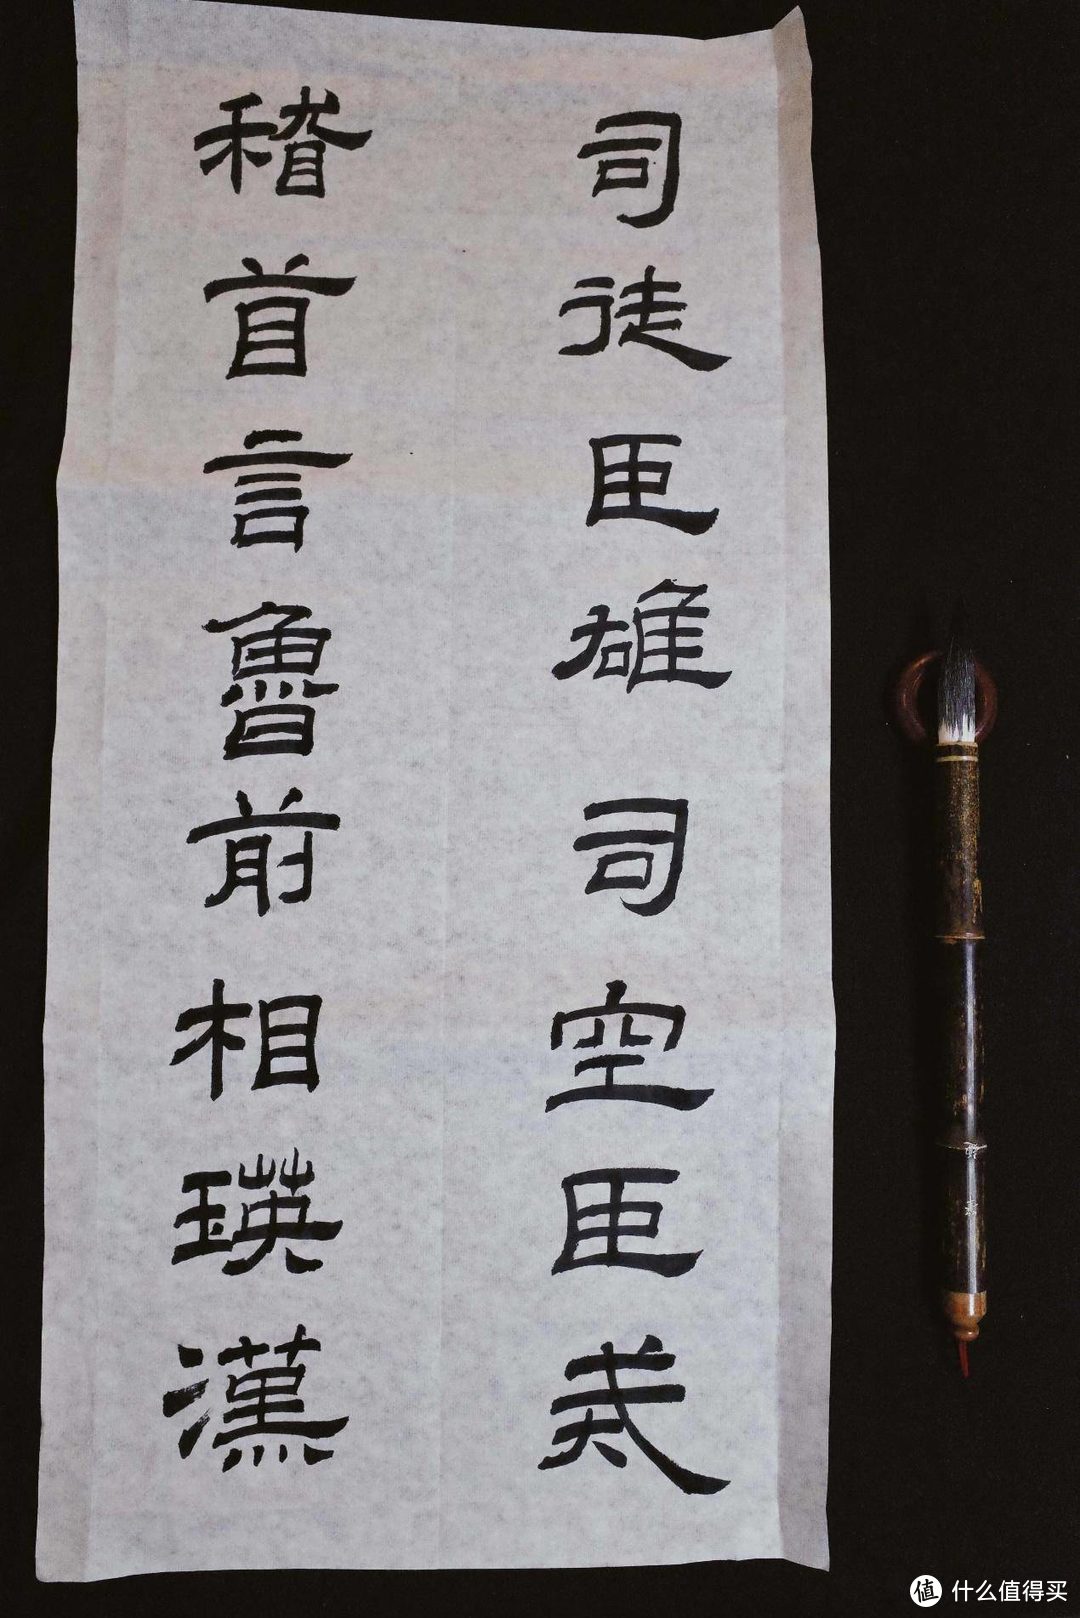 司徒臣雄司空臣戒
稽首言魯前相瑛漢
值 什么值得买